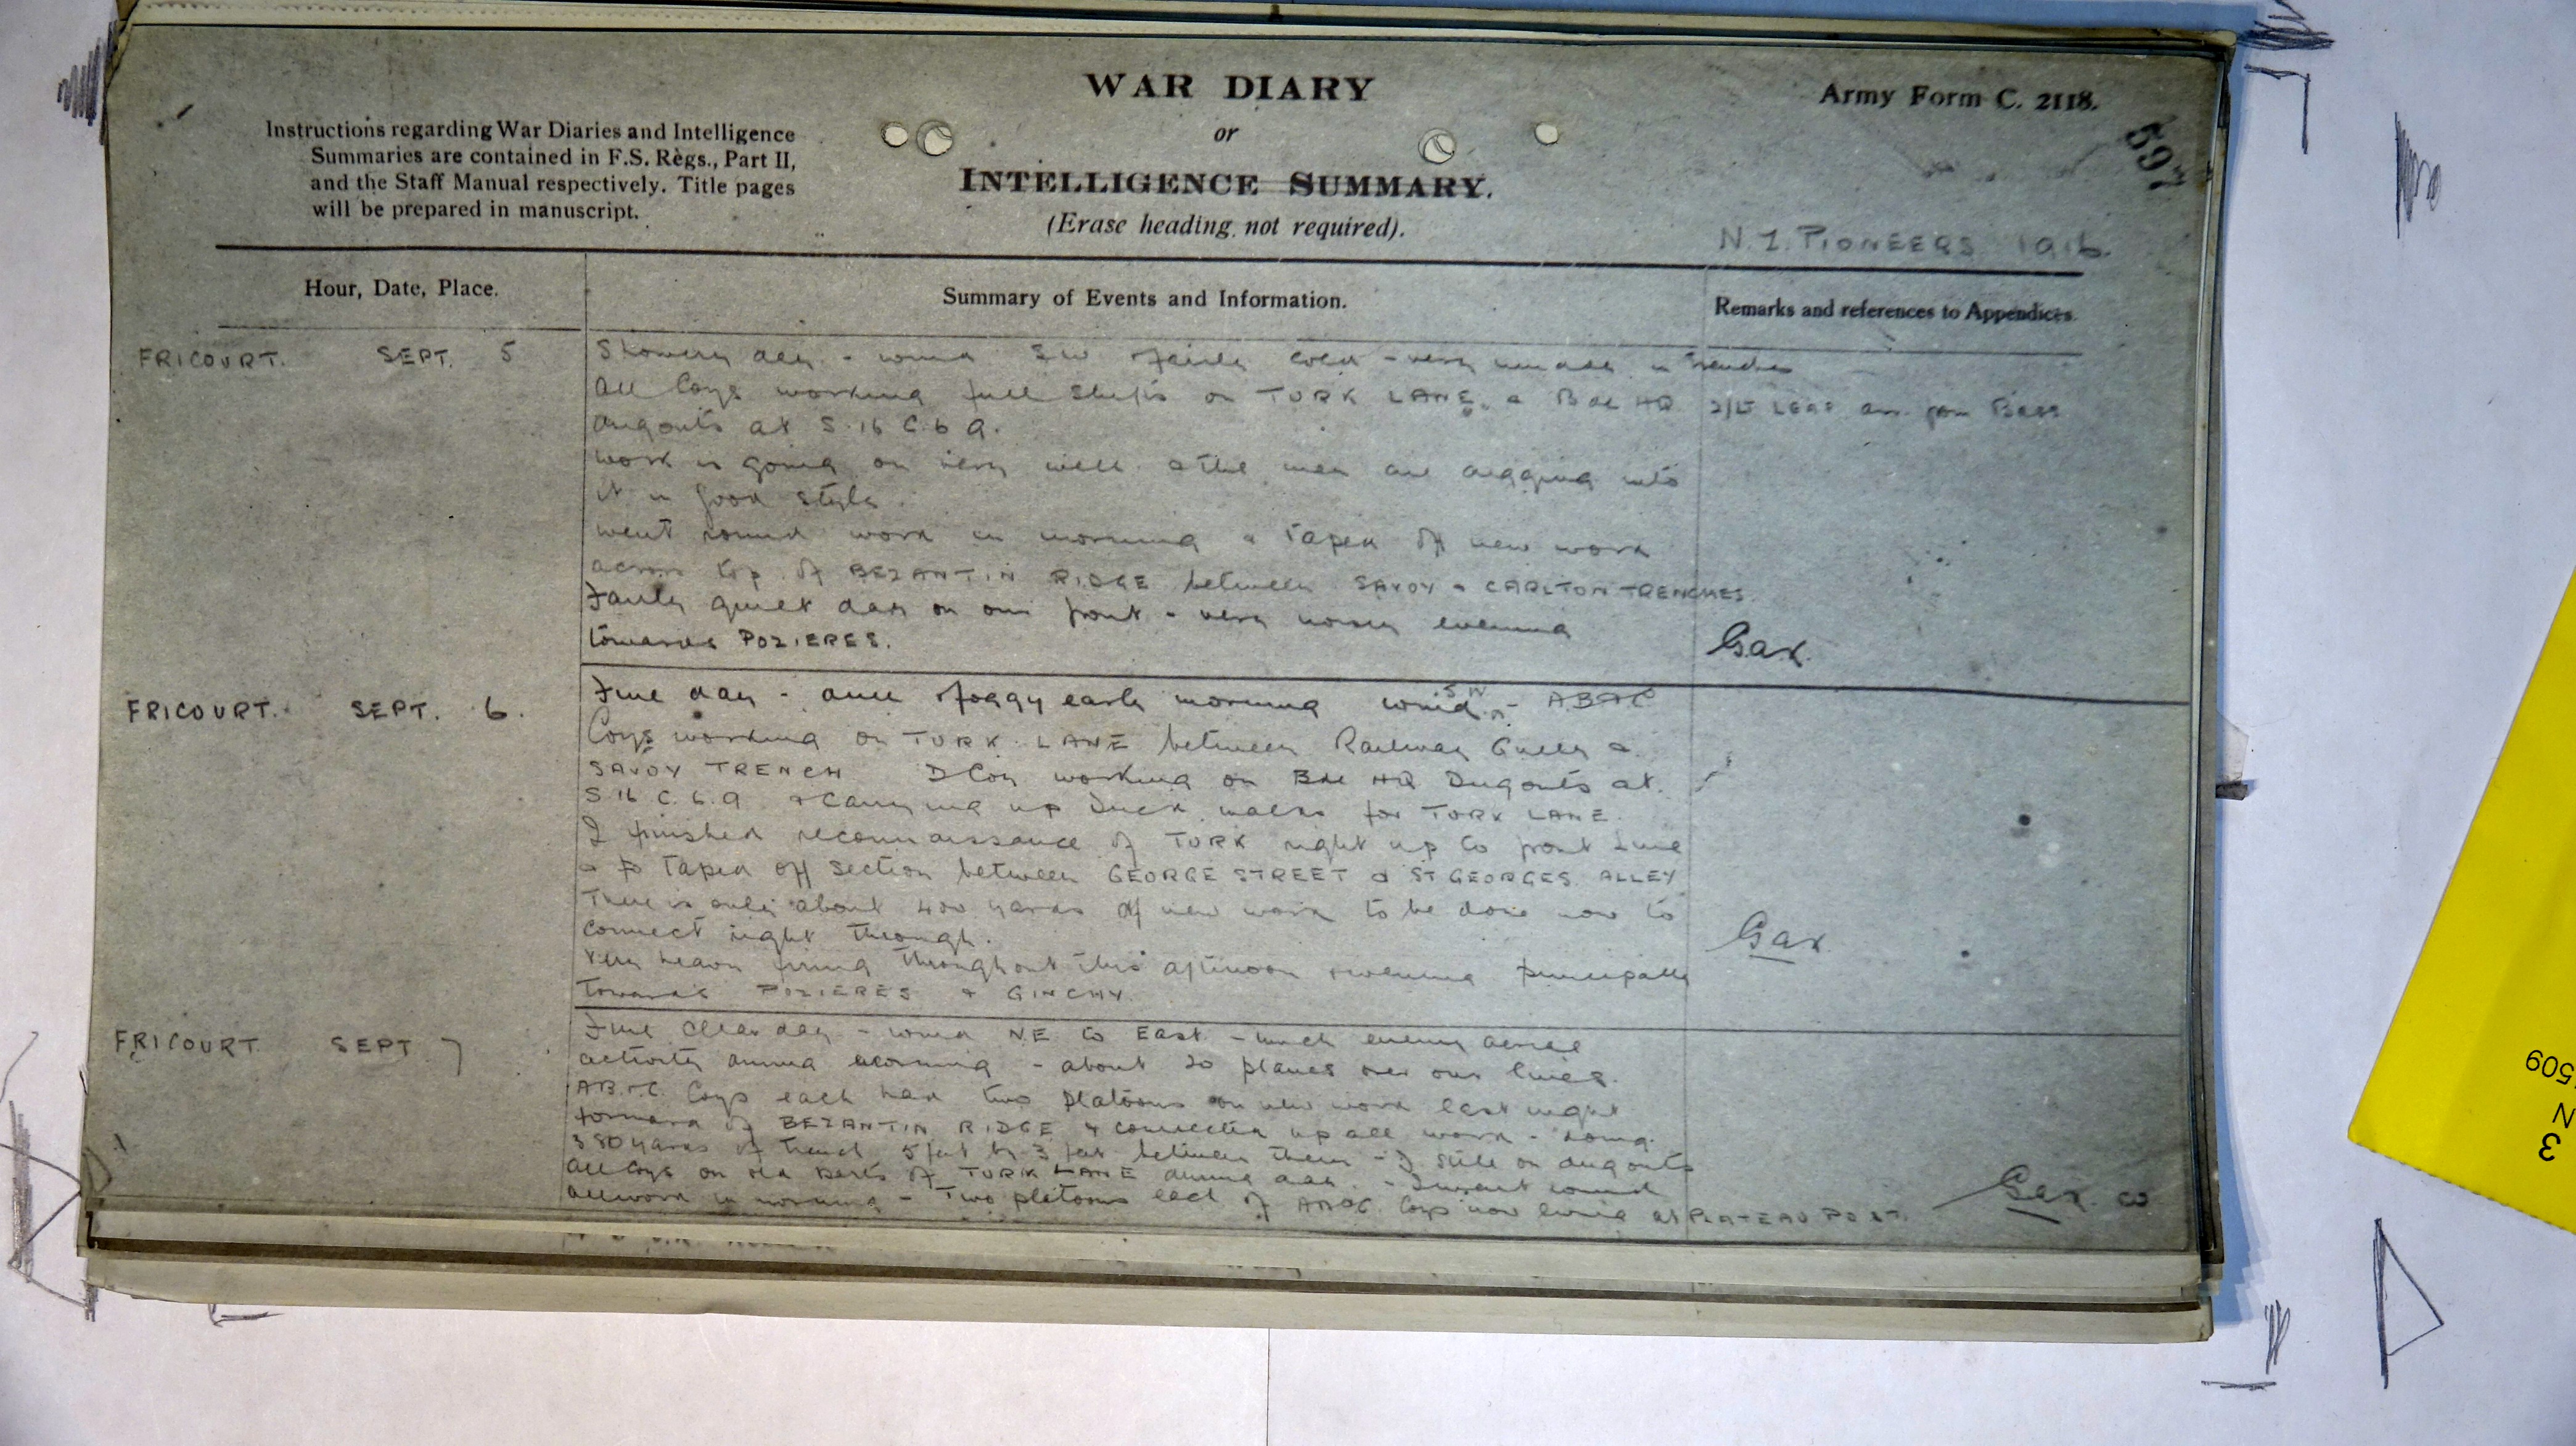 WAR DIARY
or
INTELLIGENCE SUMMARY.
(Erase heading not required).
Army Form C. 2118.
597
Instructions regarding War Diaries and Intelligence
Summaries are contained in F.S. Regs., Part II,
and the Staff Manual respectively. Title pages
will be prepared in manuscript.
N.Z. PIONEERS 1916.
Hour, Date, Place.
Summary of Events and Information.
Remarks and references to Appendices.
FRICOURT. SEPT. 5
Showery day - wind SW fairly cold - very muddy in trenches
All Coys working full shifts on TURK LANE & Bde HQ
dugouts at S.16 C.6 9.
2/Lt from Base
Work is going on very well & the men are digging into
it in good style.
Went round work in morning & taped off new work
across top of BEZANTIN RIDGE between SAVOY & CARLTON TRENCHES.
Fairly quiet day on our front - very noisy evening
towards POZIERES.
G.a.K.
FRICOURT. SEPT. 6.
Fine day - dull & foggy early morning wind SW - A B & C
Coys working on TURK LANE between Railway Gully &
SAVOY TRENCH D Coy working on Bde HQ Dugouts at
S.16 C.6.9 & carrying up duck walks for TURK LANE.
I finished reconnaissance of TURK right up to front line
& taped off section between GEORGE STREET & ST GEORGES ALLEY
There is only about 400 yards of new work to be done now to
connect right through.
Very heavy firing throughout this afternoon & evening principally
towards POZIERES & GINCHY.
Gax.
FRICOURT SEPT 7
Fine clear day - wind NE to East - much enemy aerial
activity during morning - about 20 planes over our lines.
A B & C. Coys each had two platoons on new work last night
forward of BEZANTIN RIDGE & connected up all work - doing
380 yards of trench 5 feet by 3 feet between them - D still on dugouts
All Coys on old parts of TURK LANE during day. - I went round
all work in morning - Two platoons each of A B & C Coys now living at PLATEAU POST.
Gax. CO
509
N
3